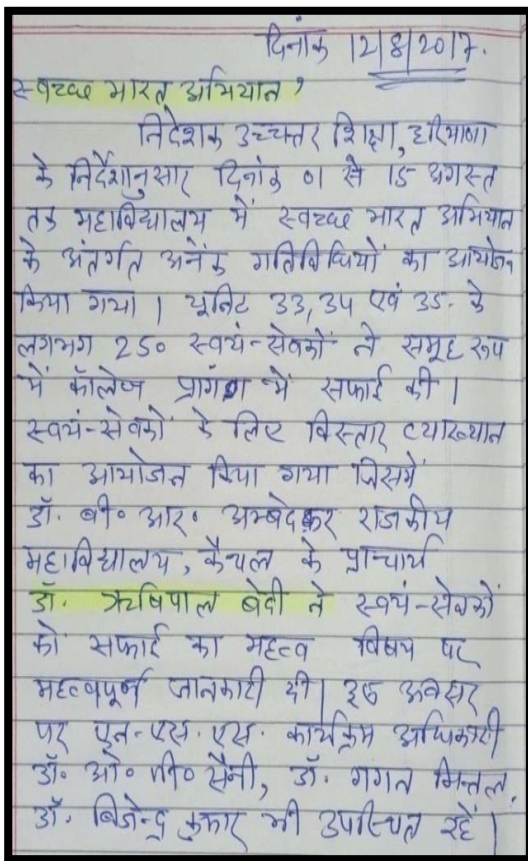 दिनांक 12/8/2017.
स्वच्छ भारत अभियान'
निदेशक उच्चतर शिक्षा, हरियाणा
के निर्देशानुसार दिनांक 01 से 15 अगस्त
तक महाविद्यालय में स्वच्छ भारत अभियान
के अंतर्गत अनेक गतिविधियों का आयोजन
किया गया। यूनिट 33, 34 एवं 35 के
लगभग 250 स्वयं-सेवकों ने समूह रूप
में कॉलेज प्रागंण में सफाई की।
स्वयं-सेवकों के लिए विस्तार व्याख्यान
का आयोजन किया गया जिसमें
डॉ. बी० आर० अम्बेदकर राजकीय
महाविद्यालय, कैथल के प्राचार्य
डॉ. ऋषिपाल बेदी ने स्वयं-सेवकों
को सफाई का महत्व विषय पर
महत्वपूर्ण जानकारी दी। इस अवसर
पर एन-एस.एस. कार्यक्रम अधिकारी
डॉ० ओ० पी० सैनी, डॉ. गगन मित्तल,
डॉ. बिजेन्द्र कुमार भी उपस्थित रहें।